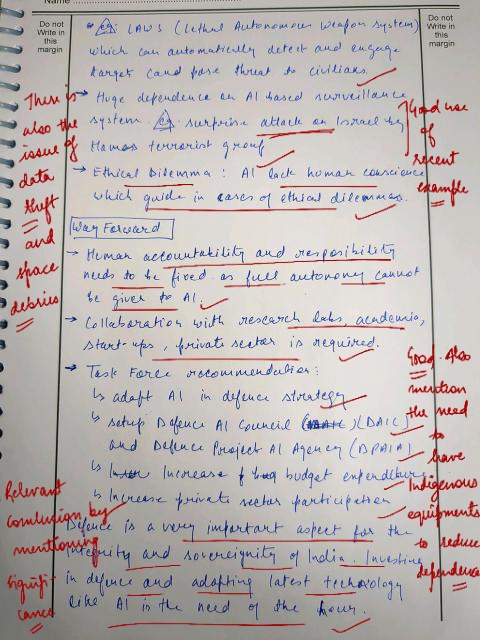 Do not
Write in
this
margin
Do not
Write in
this
margin
eg: LAWS (Lethal Autonomous Weapon System)
which can automatically detect and engage
target cand pose threat to civilians.
→ Huge dependence on AI based surveillance
system. eg: surprise attack on Israel by
Hamas terrorist group
→ Ethical Dilemma : AI lack human conscience
which guide in cases of ethical dilemmas.
Way Forward
→ Human accountability and resposibility
needs to be fixed as full autonomy cannot
be given to AI.
→ Collaboration with research labs, academia,
start-ups, private sector is required.
→ Task Force recommendation:
↳ adopt AI in defence strategy
↳ setup Defence AI Council (DAIC)
and Defence Project AI Agency (DPAIA)
↳ Increase budget expenditure
↳ Increase private sector participation
Defence is a very important aspect for the
integrity and sovereignity of India. Investing
in defence and adopting latest technology
like AI in the need of the hour.
There is
also the
issue of
data
theft
and
space
debries
Good use
of
recent
example
Good. Also
mention
the need
to
have
Indigenous
equipments
to reduce
dependence
Relevant
conclusion by
mentioning
signifi-
cance